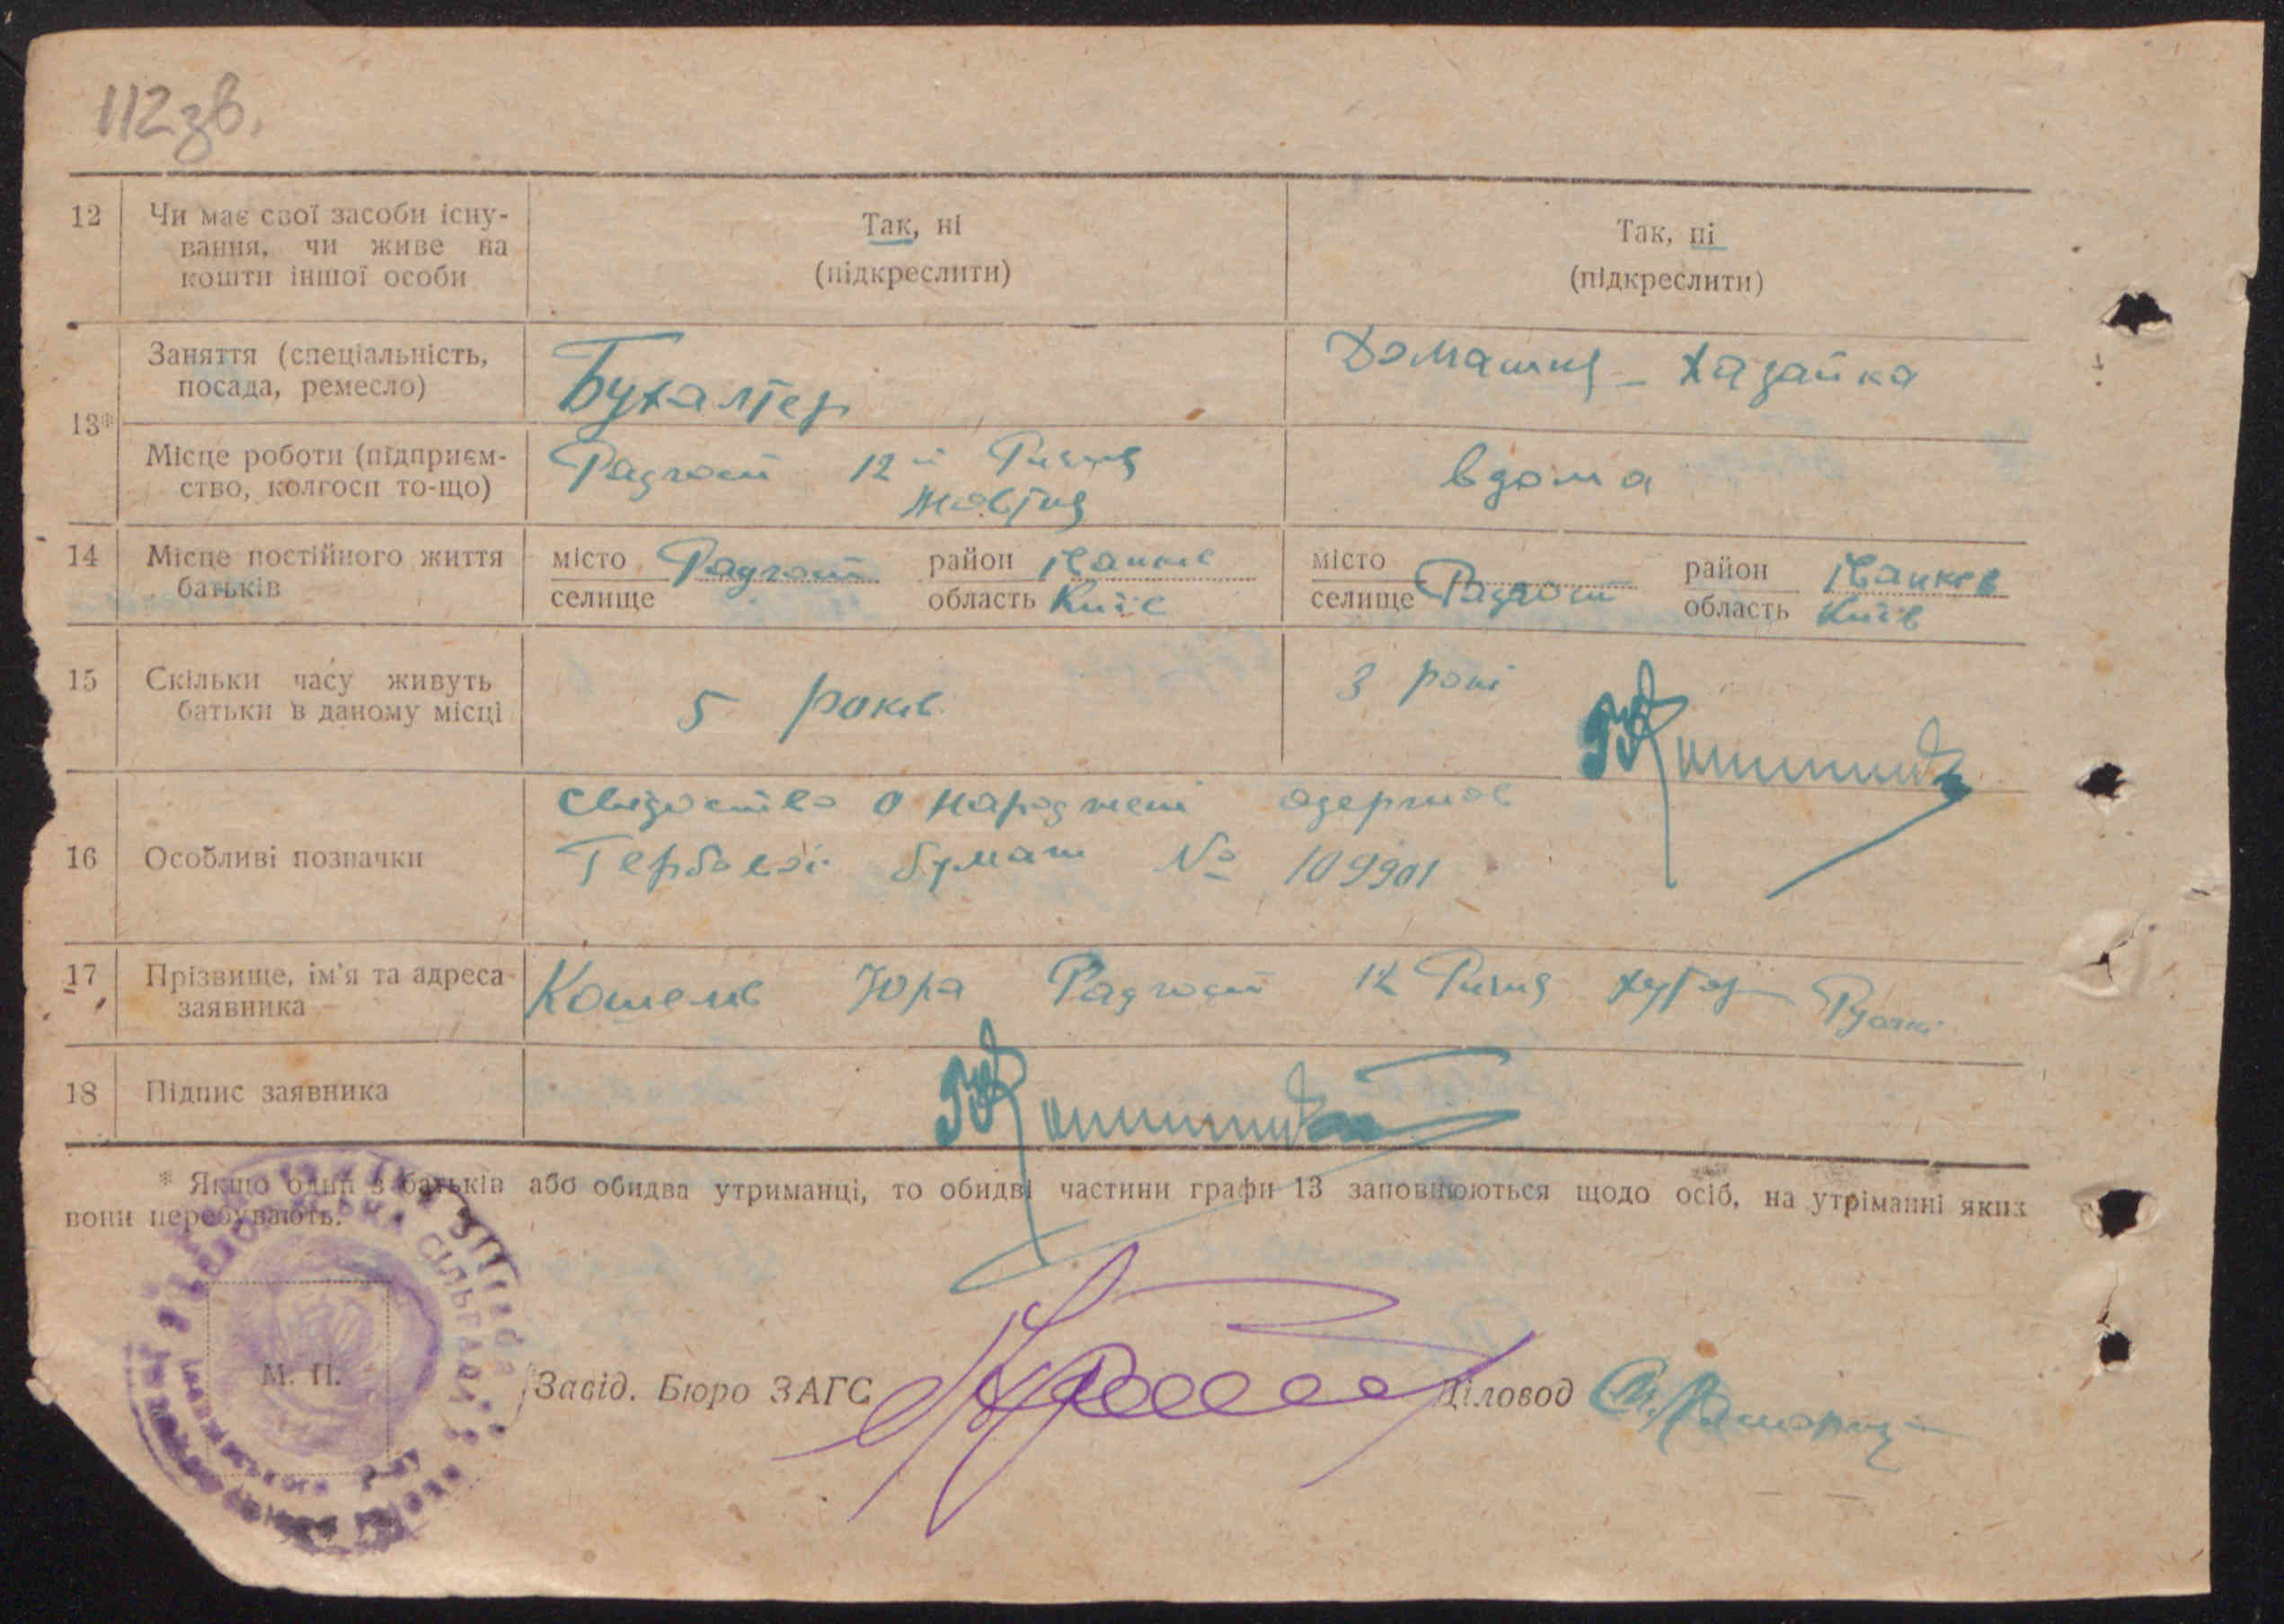 112зв.
12 Чи має свої засоби існу-
вання, чи живе на
кошти іншої особи
Так, ні
(підкреслити)
Так, ні
(підкреслити)
13*
Заняття (спеціальність,
посада, ремесло)
Бухалтер
Домашня - хазайка
Місце роботи (підприєм-
ство, колгосп то-що)
Радгосп 12й Річчя
Жовтня
вдома
14 Місце постійного життя
батьків
місто
селище
Радгосп
район Іванкв
область Київ
місто
селище
Радгосп
район Іванков
область Київ
15 Скільки часу живуть
батьки в даному місці
5 років
3 рокі
16 Особливі позначки
Свідоство о народжені одержав
Гербовой бумаги № 109901
17 Прізвище, ім'я та адреса
заявника
Юра Радгосп 12 Річчя хутор
18 Підпис заявника
* Якщо один з батьків або обидва утриманці, то обидві частини графи 13 заповнюються щодо осіб, на утріманні яких
вони перебувають.
М. П.
Завід. Бюро ЗАГС
Діловод